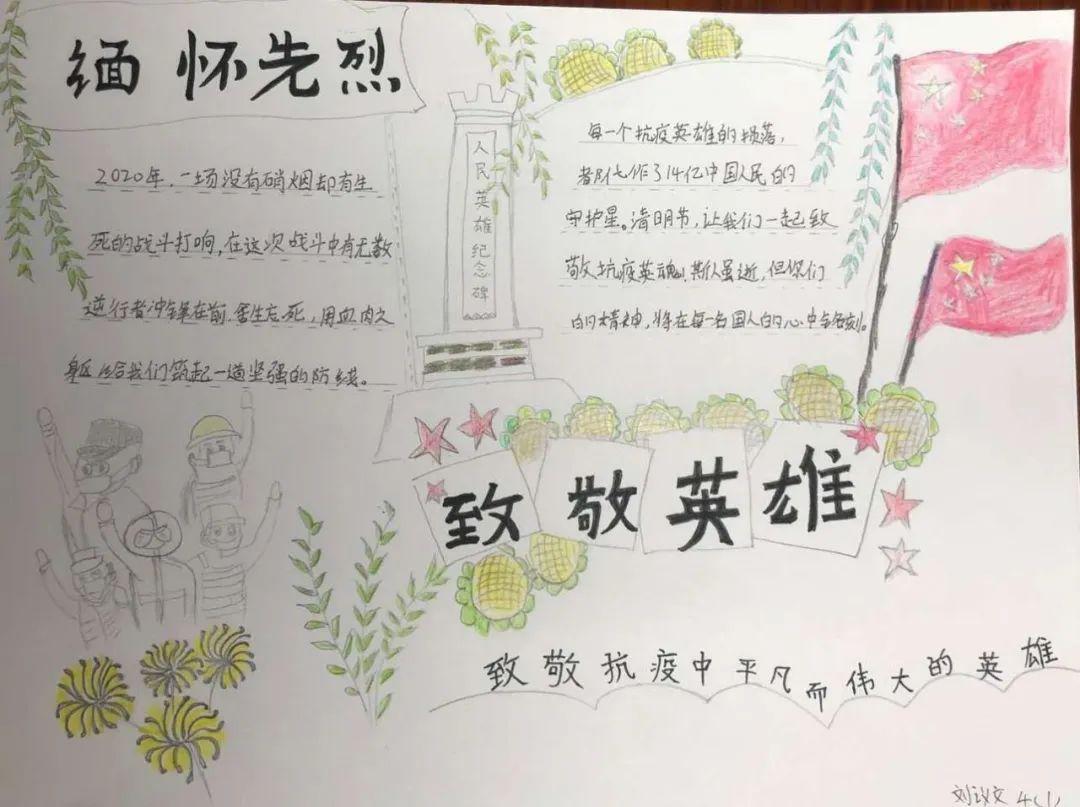 缅怀先烈
2020年,一场没有硝烟却有生
死的战斗打响,在这次战斗中有无数
逆行者冲锋在前,舍生忘死,用血肉之
躯给我们筑起一道坚强的防线。
人民英雄纪念碑
每一个抗疫英雄的损落,
都化作了14亿中国人民的
守护星。清明节,让我们一起致
敬抗疫英魂,斯人虽逝,但你们
的精神,将在每一名国人的心中铭刻。
致敬英雄
致敬抗疫中平凡而伟大的英雄
刘 文 4(1)